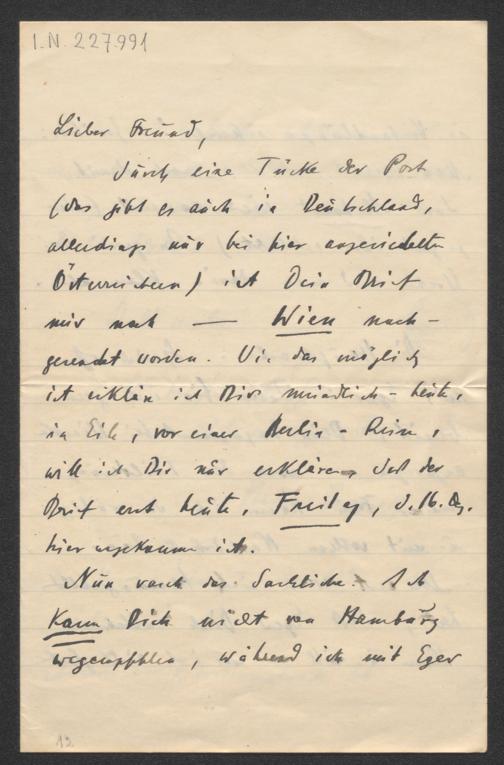 I.N. 227.991
Lieber Freund,
durch eine Tücke der Post
(das gibt es auch in Deutschland,
allerdings nur bei hier angesiedelten
Österreichern) ist Dein Brief
mir nach — Wien nach-
gesendet worden. Wie das möglich
ist erklär ich Dir mündlich – heute,
in Eile, vor einer Berlin-Reise,
will ich Dir nur erklären, daß der
Brief erst heute, Freitag, d. 16.
hier angekommen ist.
Nun rasch das Sachliche: Ich
kann Dich nicht von Hamburg
wegempfehlen, während ich mit Eger
12